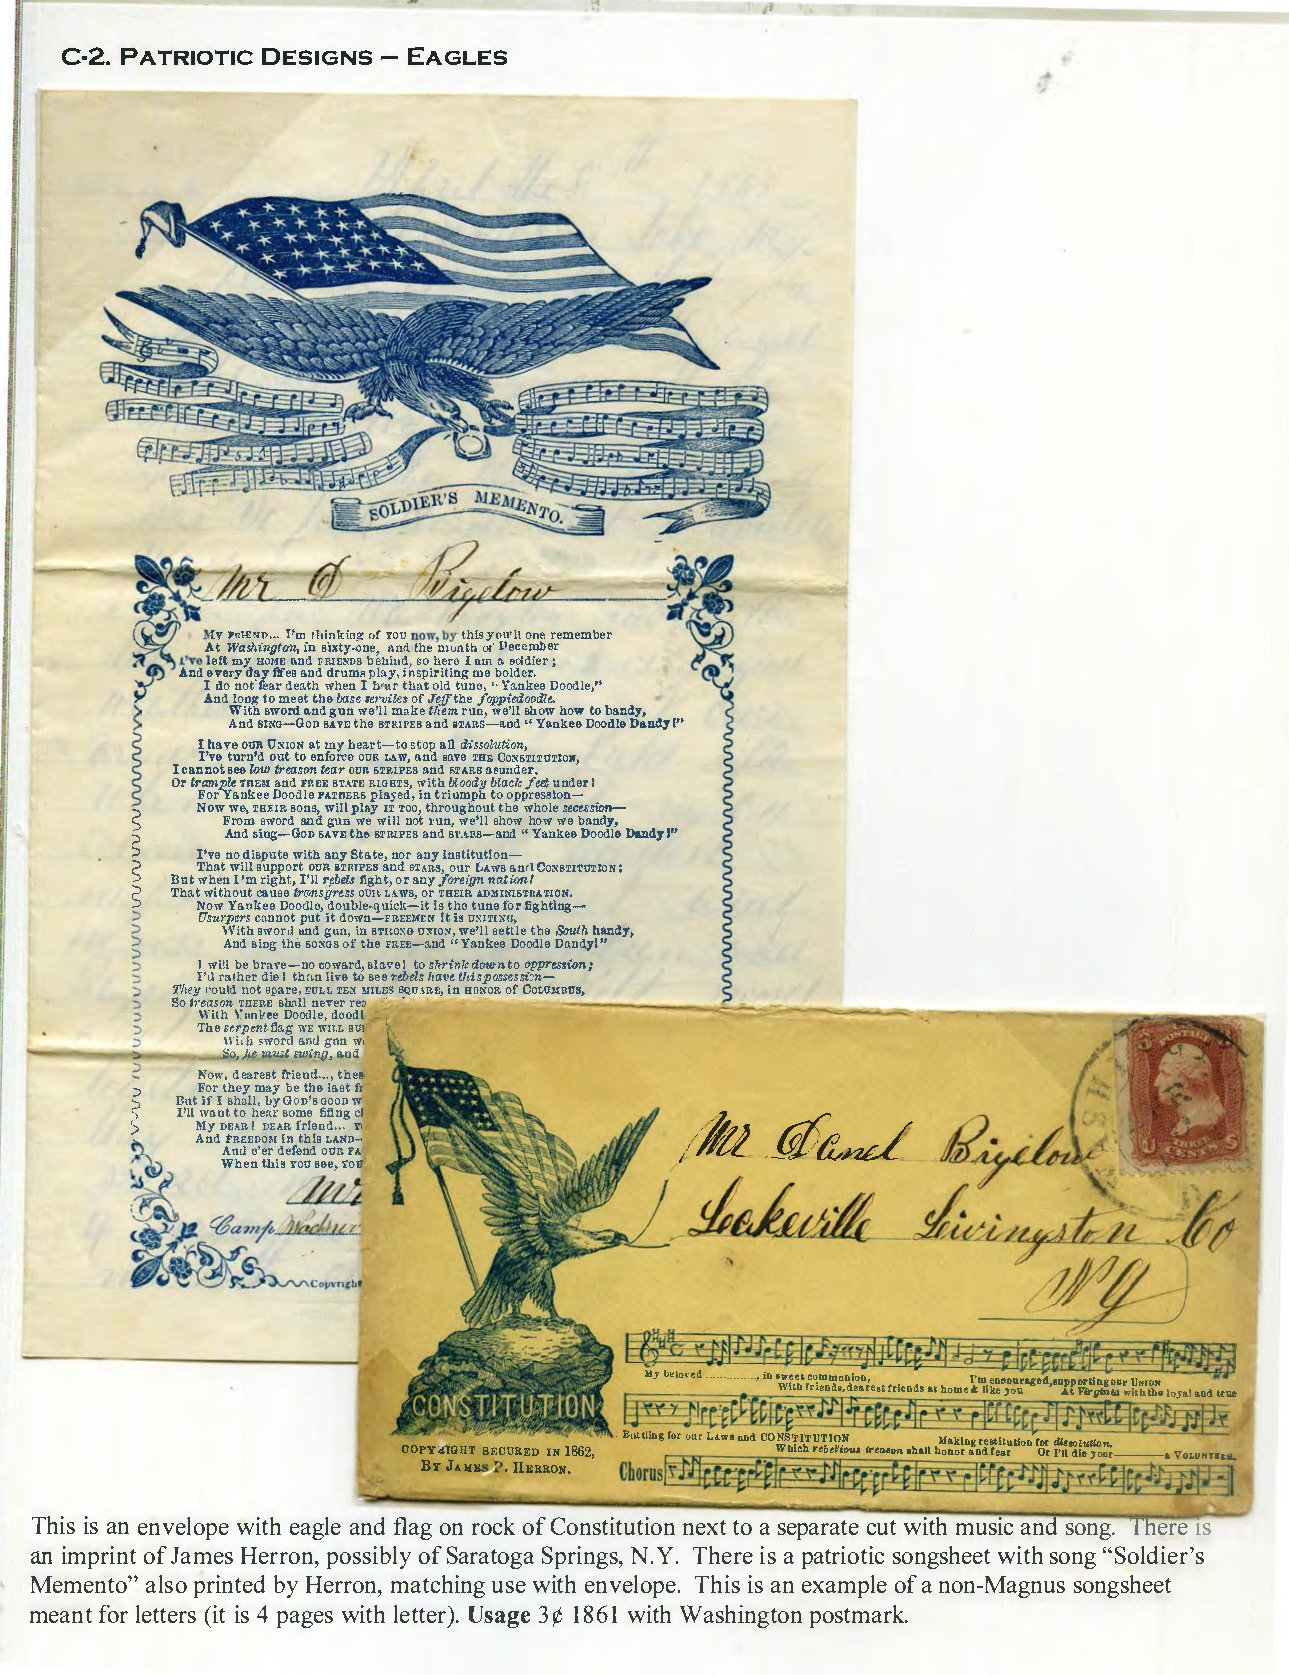 C-2. PATRIOTIC DESIGNS – EAGLES
SOLDIER'S MEMENTO.
Mr D Bigelow
MY FRIEND... I'm thinking of YOU now, by this you'll one remember
At Washington, in sixty-one, and the month of December
I've left my HOME and FRIENDS behind, so here I am a soldier;
And every day fifes and drums play, inspiriting me bolder.
I do not fear death when I hear that old tune, "Yankee Doodle,"
And long to meet the base serviles of Jeff the foppiedoodle.
With sword and gun we'll make them run, we'll show how to bandy,
And SING—GOD SAVE the STRIPES and STARS—and "Yankee Doodle Dandy!"
I have OUR UNION at my heart—to stop all dissolution,
I've turn'd out to enforce OUR LAW, and save THE CONSTITUTION,
I cannot see low treason tear OUR STRIPES and STARS asunder.
Or trample THEM and FREE STATE RIGHTS, with bloody black feet under!
For Yankee Doodle FATHERS played, in triumph to oppression—
Now we, THEIR sons, will play IT TOO, throughout the whole secession—
From sword and gun we will not run, we'll show how we bandy,
And sing—GOD SAVE the STRIPES and STARS—and "Yankee Doodle Dandy!"
I've no dispute with any State, nor any institution—
That will support OUR STRIPES and STARS, our LAWS and CONSTITUTION;
But when I'm right, I'll rebels fight, or any foreign nation!
That without cause transgress OUR LAWS, or THEIR ADMINISTRATION.
Now Yankee Doodle, double-quick—it is the tune for fighting—
Usurpers cannot put it down—FREEMEN it is UNITING,
With sword and gun, in STRONG UNION, we'll settle the South handy,
And sing the SONGS of the FREE—and "Yankee Doodle Dandy!"
I will be brave—no coward, slave! to shrink down to oppression;
I'd rather die! than live to see rebels have this possession—
They could not spare, FULL TEN MILES SQUARE, in HONOR of COLUMBUS,
So treason THERE shall never
With Yankee Doodle,
The serpent flag WE WILL
With sword and gun
So, he must swing, and
Now, dearest friend...,
For they may be the last
But if I shall, by GOD'S GOOD
I'll want to hear some fifing
My DEAR! DEAR friend...
And FREEDOM in this LAND—
And o'er defend OUR
When this YOU see, YOU
Camp
Copyright
WASH
POSTAGE
3
U THREE CENTS S
Mr Daniel Bigelow
Leakeville Livingston Co
NY
CONSTITUTION
COPYRIGHT SECURED IN 1862,
BY JAMES P. HERRON.
My beloved ............, in sweet communion, I'm encouraged, supporting our UNION
With friends, dearest friends at home & like you At Virginia with the loyal and true
Battling for our LAWS and CONSTITUTION Making restitution for dissolution,
Which rebellious treason shall honor and fear Or I'll die your————a VOLUNTEER.
Chorus
This is an envelope with eagle and flag on rock of Constitution next to a separate cut with music and song. There is
an imprint of James Herron, possibly of Saratoga Springs, N.Y. There is a patriotic songsheet with song “Soldier’s
Memento” also printed by Herron, matching use with envelope. This is an example of a non-Magnus songsheet
meant for letters (it is 4 pages with letter). Usage 3¢ 1861 with Washington postmark.